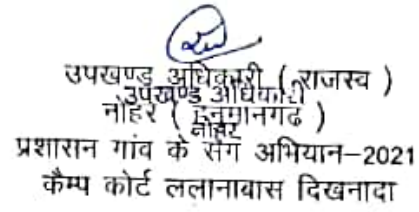 उपखण्ड अधिकारी ( राजस्व )
उपखण्ड अधिकारी
नोहर ( हनुमानगढ )
नोहर
प्रशासन गांव के संग अभियान–2021
कैम्प कोर्ट ललानाबास दिखनादा